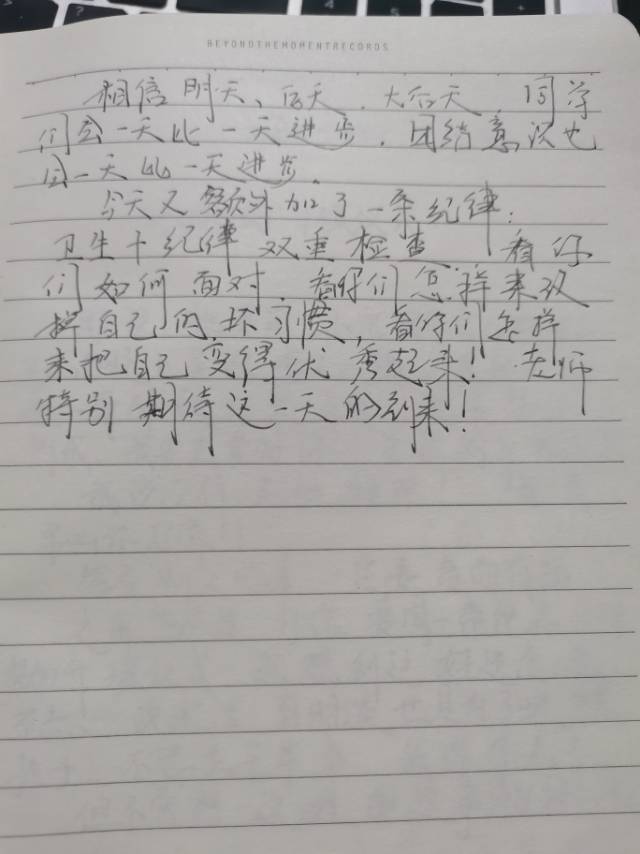 BEYONDTHEMOMENTRECORDS
相信明天、后天、大后天,同学
们会一天比一天进步,团结意识也
会一天比一天进步。
今天又额外加了一条纪律:
卫生+纪律 双重检查。看你
们如何面对,看你们怎样来改
掉自己的坏习惯,看你们怎样
来把自己变得优秀起来!老师
特别期待这一天的到来!